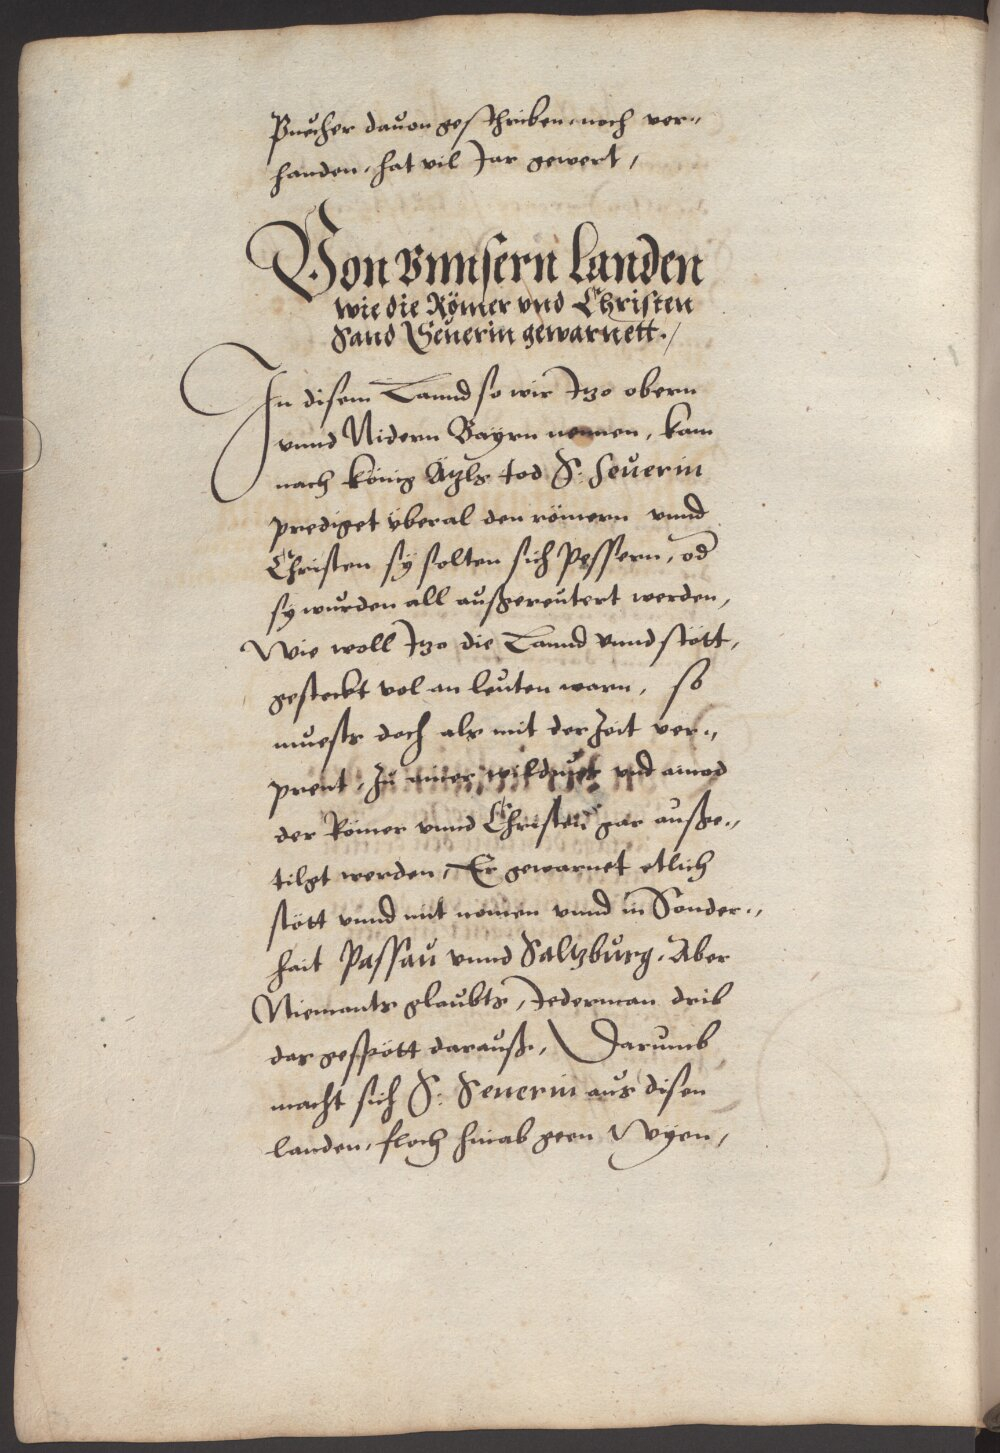 Puecher dauon geschriben, noch ver„
handen, hat vil Jar gewert,
Von vnnsern Landen
wie die Römer vnd Christen
Sand Seuerin gewarnett./
In disem Lannd so wir Jtzo obern
vnnd Nidern Bayrn nennen, kam
nach könig Ätzls tod S: Seuerin
prediget vberal den römern vnnd
Christen sy solten sich Pessern, od
sy wurden all außgereutert werden,
Wie woll Jtzo die Lannd vnnd stött,
gesteckt vol an leuten warn, so
muests doch als mit der Zeit ver„
prent, Zu ainer wildnus vnd ainod
der Römer vnnd Christen gar außge„
tilgt werden, Er gewarnet etlich
stött vnnd mit nomen vnnd in Sonder„
hait Passau vnnd Saltzburg, Aber
Niemants glaubts, Jederman drib
das gespött darauß, Darumb
macht sich S: Seuerin aus disen
landen, floch hinab geen Wyen,